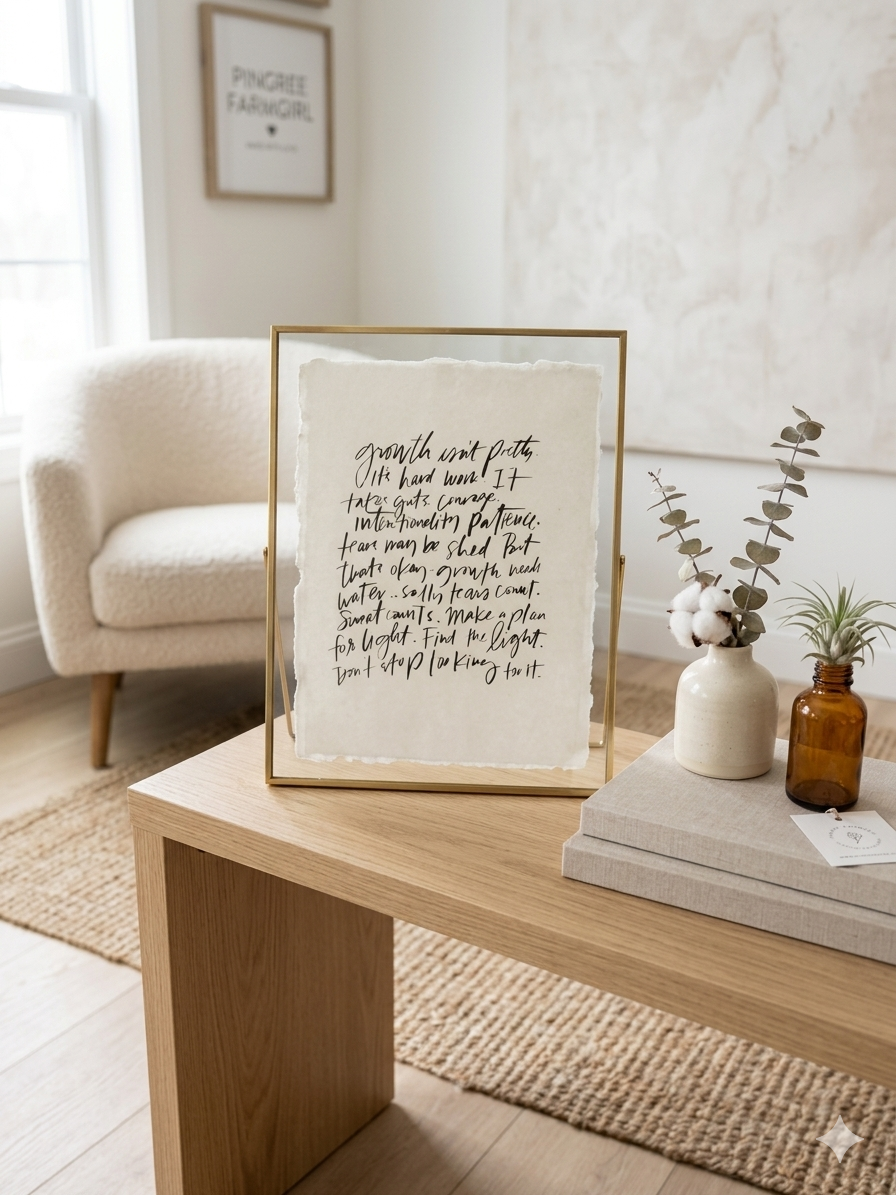 PINGREE
FARMGIRL
growth isn't pretty.
It's hard work. It
takes guts. Courage.
Intentionality Patience.
tears may be shed But
that's okay - growth needs
water .. salty tears count.
Sweat counts. Make a plan
for light. Find the light.
Don't stop looking for it.